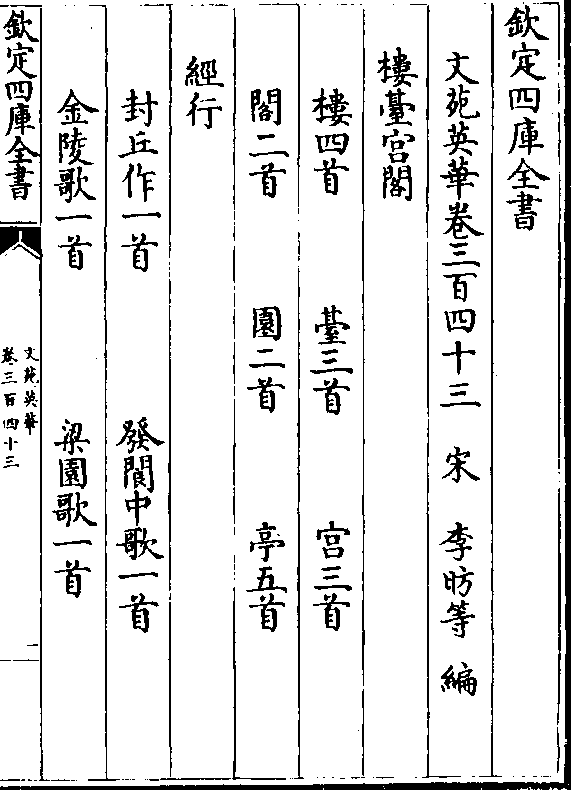 欽定四庫全書
文苑英華卷三百四十三　宋　李昉等　編
樓臺宫閣
樓四首　臺三首　宫三首
閣二首　園二首　亭五首
經行
封丘作一首　發閬中歌一首
金陵歌一首　梁園歌一首
欽定四庫全書
文苑英華
卷三百四十三
一